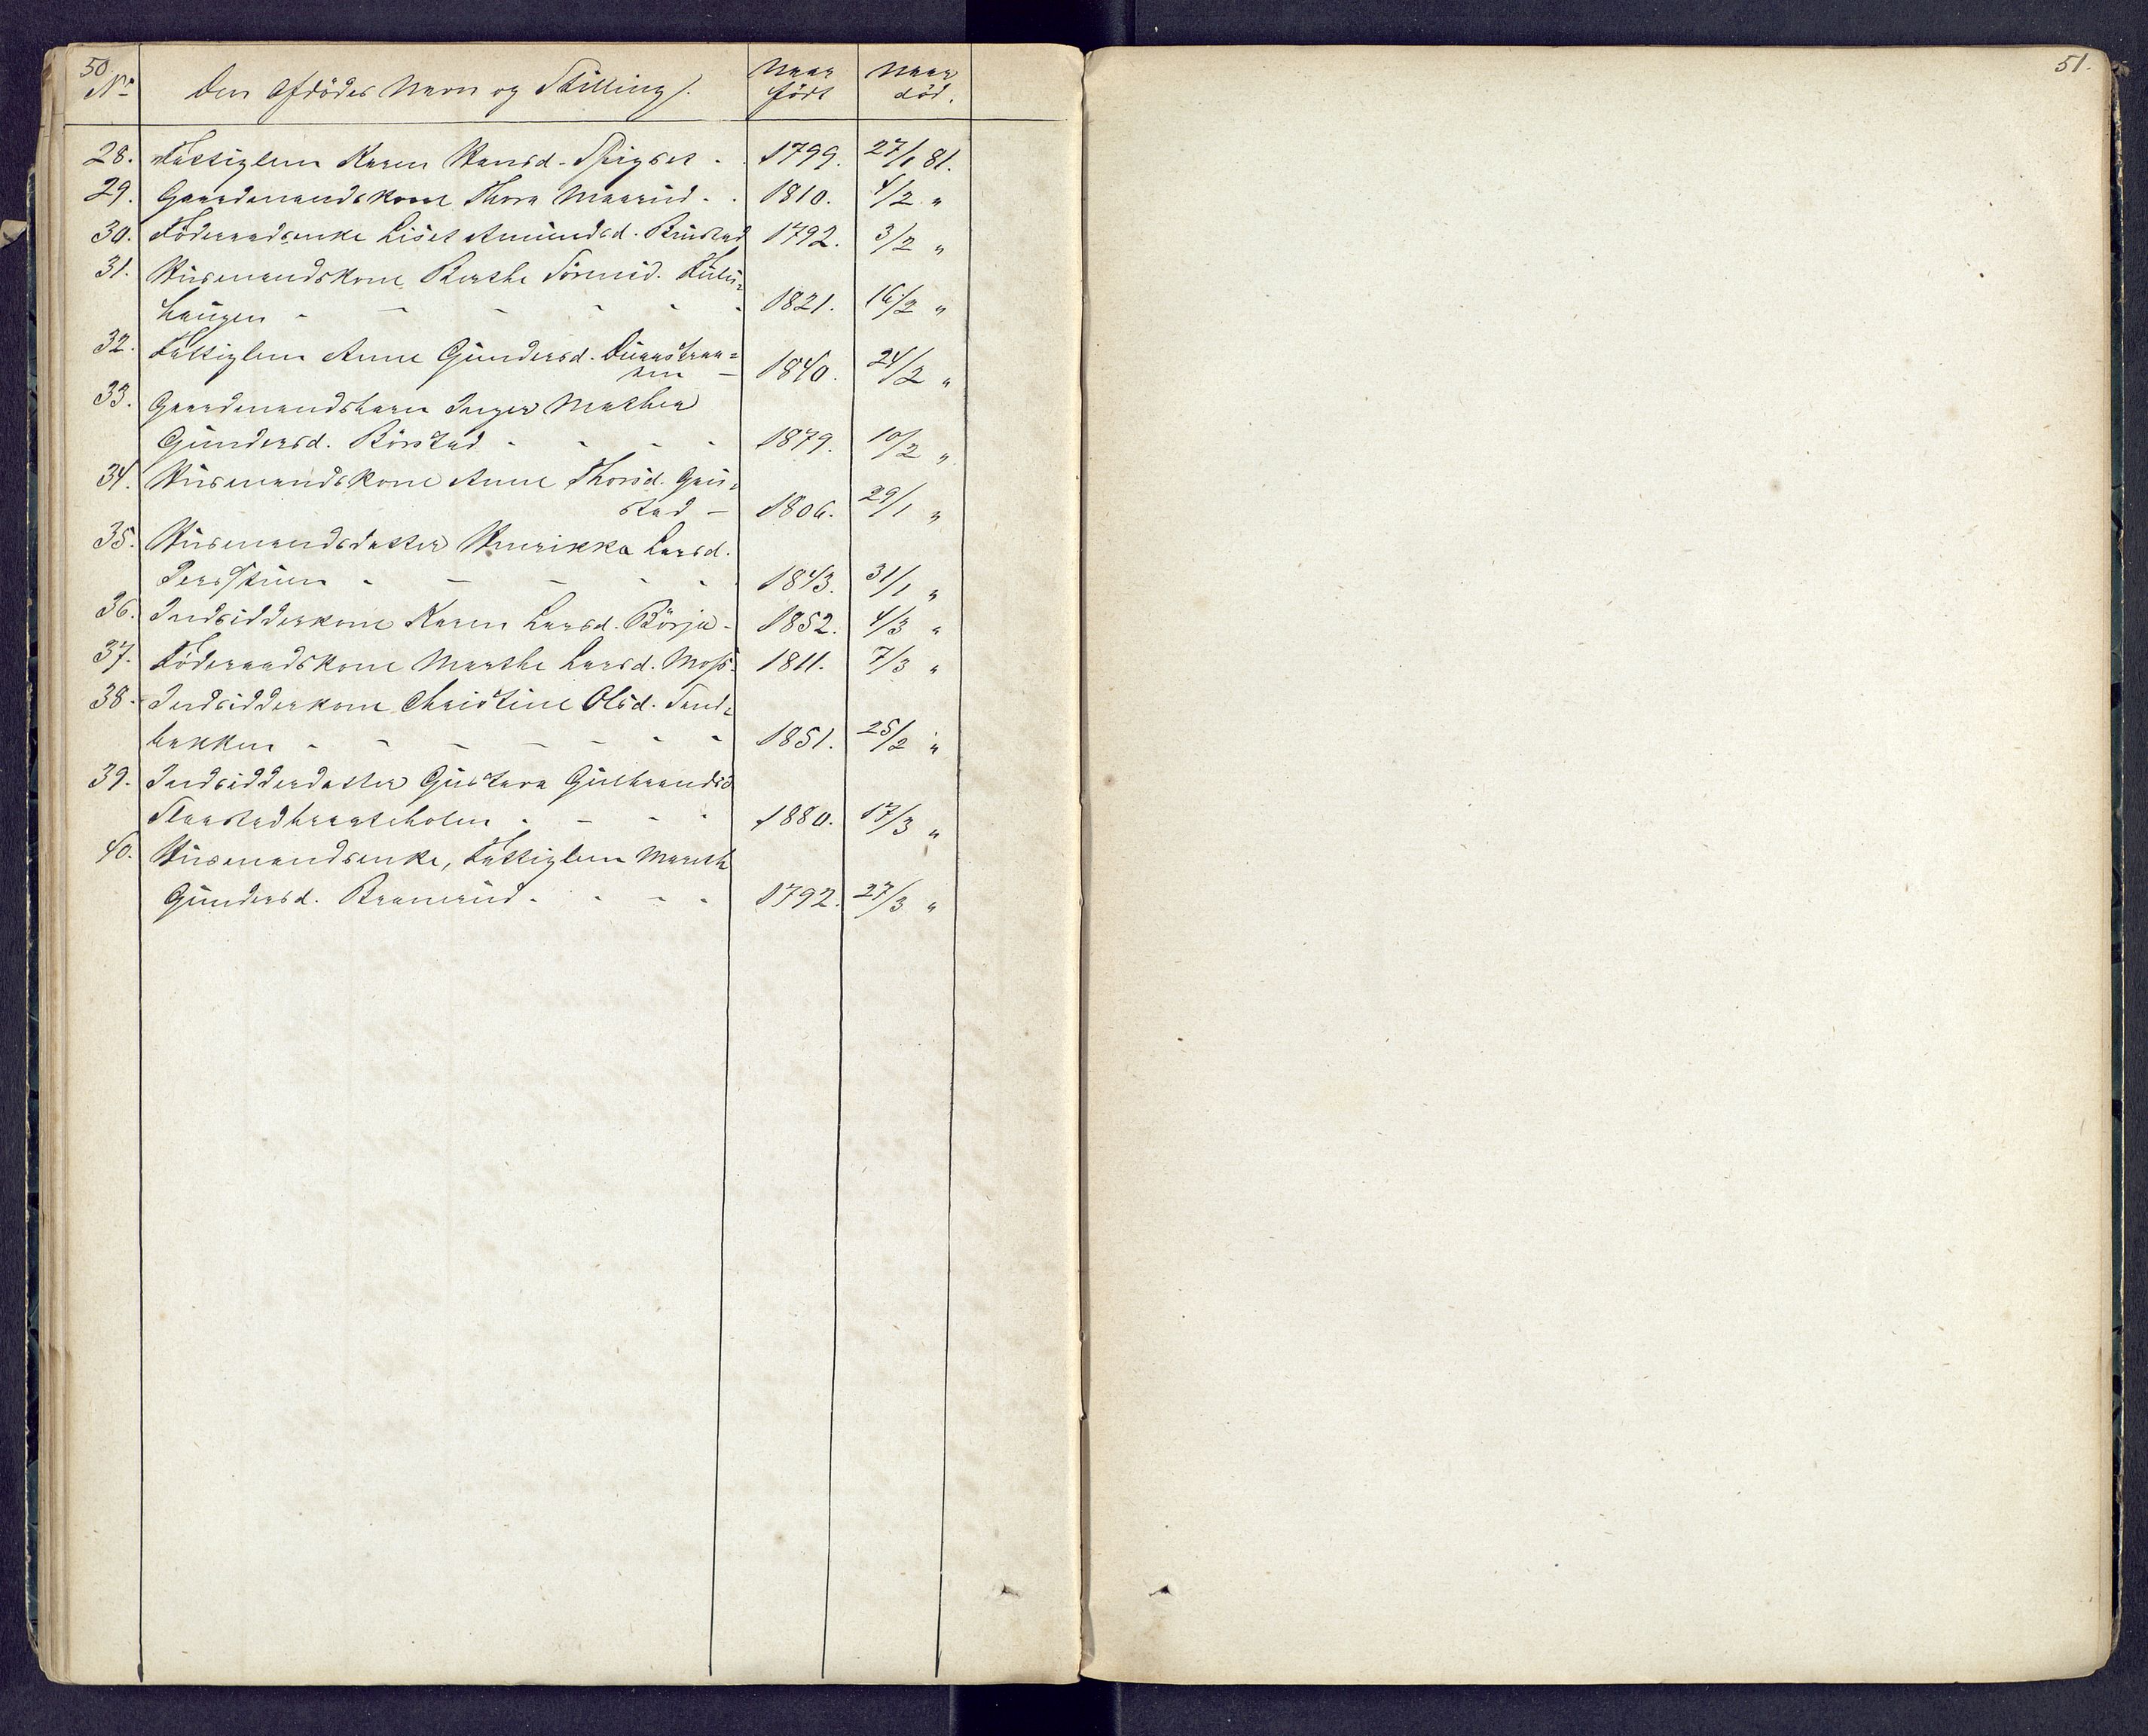 50.
51.
No Den Afdødes Navn og Stilling. Naar født Naar død.
28. Fattiglem Karen Hansd. Spigset 1799. 27/1 81.
29. Gaardmandskone Thora Maarud 1810. 4/2 "
30. Föderaadsenke Liset Amundsd. Brustad 1792. 3/2 "
31. Husmandskone Berthe Sörensd. Kulu=
haugen 1821. 16/2 "
32. Fattiglem Anne Gundersd.
1840. 24/2 "
33. Gaardmandsbarn Inger Mathea
Gundersd. Börstad 1879. 10/2 "
34. Husmandskone Anne Thorsd. Gau=
stad 1806. 29/1 "
35. Husmandsdatter Henrikka Larsd.
1843. 31/1 "
36. Indsidderkone Karen Larsd. Börja 1852. 4/3 "
37. Föderaadskone Marthe Larsd. Moss 1811. 7/3 "
38. Indsidderkone Christine Olsd. Sand=
bakken 1851. 25/2 "
39. Indsidderdatter Gustava Gulbrandsd
1880. 17/3 "
40. Husmandsenke, Fattiglem Marith
Gundersd. Bramrud 1792. 27/3 "